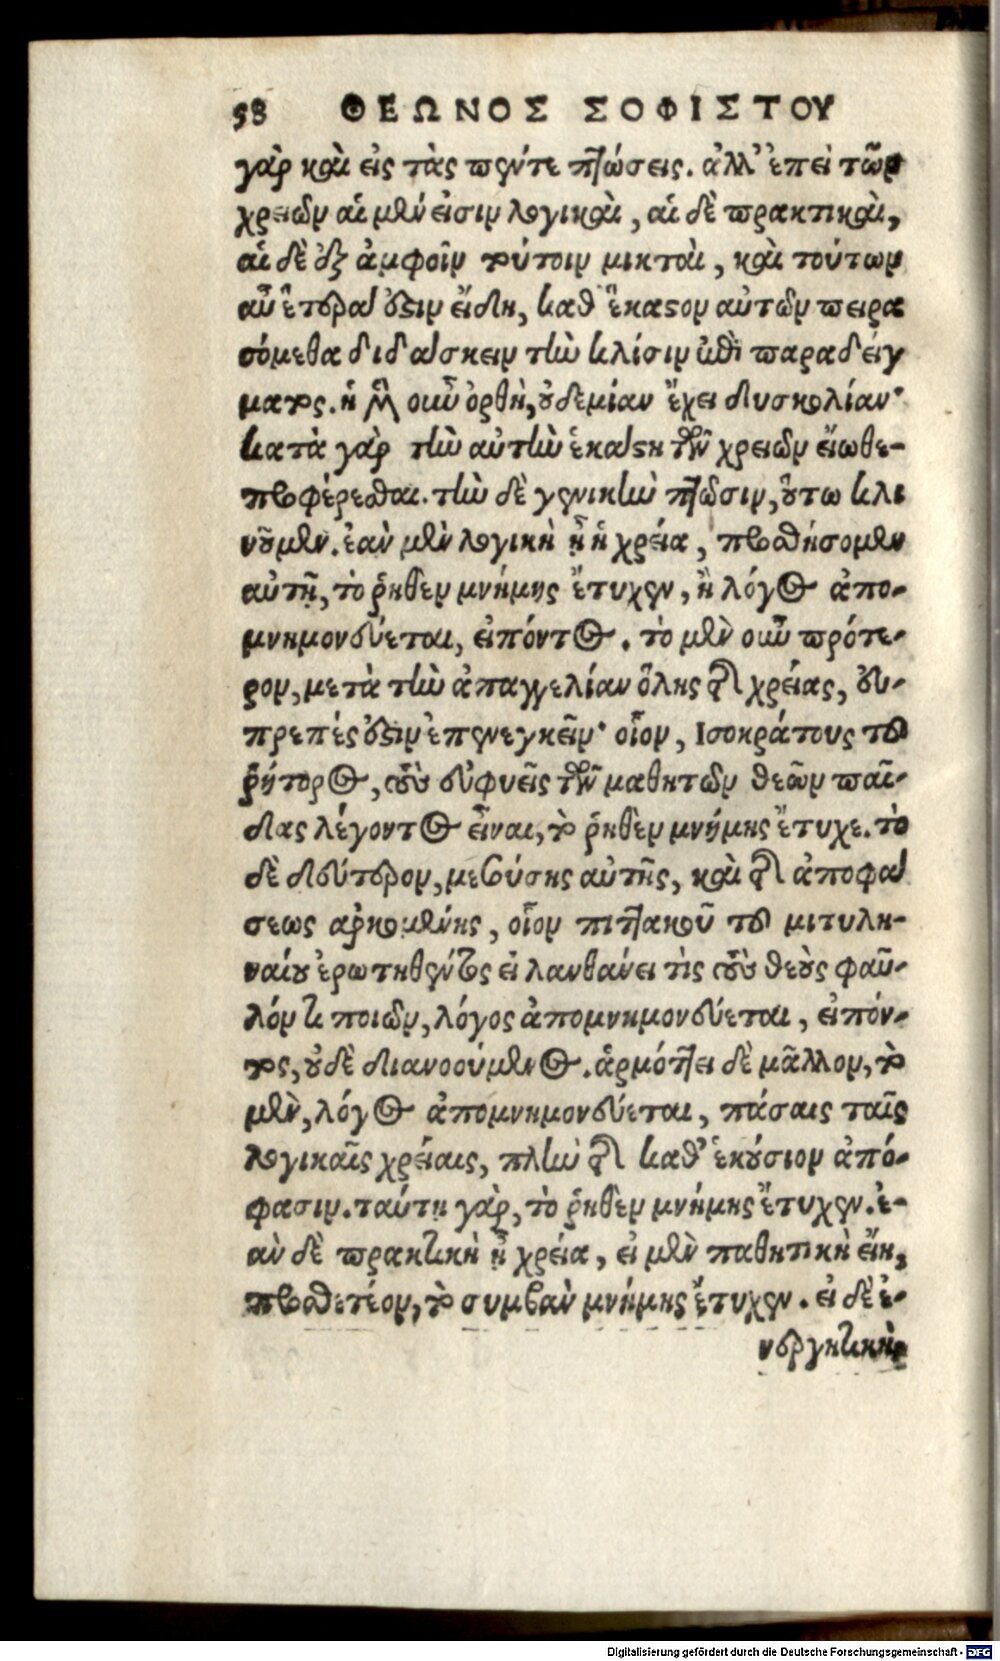 58 ΘΕΩΝΟΣ ΣΟΦΙΣΤΟΥ
γὰρ καὶ εἰς τὰς πέντε πτώσεις. ἀλλ' ἐπεὶ τῶν
χρειῶν αἱ μέν εἰσιν λογικαὶ, αἱ δὲ πρακτικαὶ,
αἱ δὲ ἐξ ἀμφοῖν τούτοιν μικταὶ, καὶ τούτων
αὖ ἕτερα ἐστιν εἴδη, καθ' ἕκαστον αὐτῶν πειρα
σόμεθα διδάσκειν τὴν κλίσιν ἐπὶ παραδείγ
ματος. ἡ μὲν οὖν ὀρθὴ, οὐδεμίαν ἔχει δυσκολίαν·
κατὰ γὰρ τὴν αὐτὴν ἑκάστη τῶν χρειῶν εἴωθε-
προφέρεσθαι. τὴν δὲ γενικὴν πτῶσιν, οὕτω κλι
νοῦμεν. ἐὰν μὲν λογικὴ ᾖ ἡ χρεία, προσθήσομεν
αὐτῇ, τὸ ῥηθὲν μνήμης ἔτυχεν, ἢ λόγος ἀπο-
μνημονεύεται, εἰπόντος. τὸ μὲν οὖν πρότε-
ρον, μετὰ τὴν ἀπαγγελίαν ὅλης τῆς χρείας, εὐ-
πρεπές ἐστιν ἐπενεγκεῖν· οἷον, Ισοκράτους τοῦ
ῥήτορος, τοὺς εὐφυεῖς τῶν μαθητῶν θεῶν παῖ-
δας λέγοντος εἶναι, τὸ ῥηθὲν μνήμης ἔτυχε. τὸ
δὲ δεύτερον, μεσούσης αὐτῆς, καὶ τῆς ἀποφά
σεως ἀρχομένης, οἷον πιττακοῦ τοῦ μιτυλη-
ναίου ἐρωτηθέντος εἰ λανθάνει τὶς τοὺς θεοὺς φαῦ-
λόν τι ποιῶν, λόγος ἀπομνημονεύεται, εἰπόν-
τος, οὐδὲ διανοούμενος. ἁρμόττει δὲ μᾶλλον, τὸ
μὲν, λόγος ἀπομνημονεύεται, πάσαις ταῖς
λογικαῖς χρείαις, πλὴν τῆς καθ' ἑκούσιον ἀπό-
φασιν. ταύτῃ γὰρ, τὸ ῥηθὲν μνήμης ἔτυχεν. ἐ-
ὰν δὲ πρακτικὴ ᾖ χρεία, εἰ μὲν παθητικὴ εἴη,
προσθετέον, τὸ συμβὰν μνήμης ἔτυχεν. εἰ δὲ ἐ-
νεργητικὴ
Digitalisierung gefördert durch die Deutsche Forschungsgemeinschaft - DFG